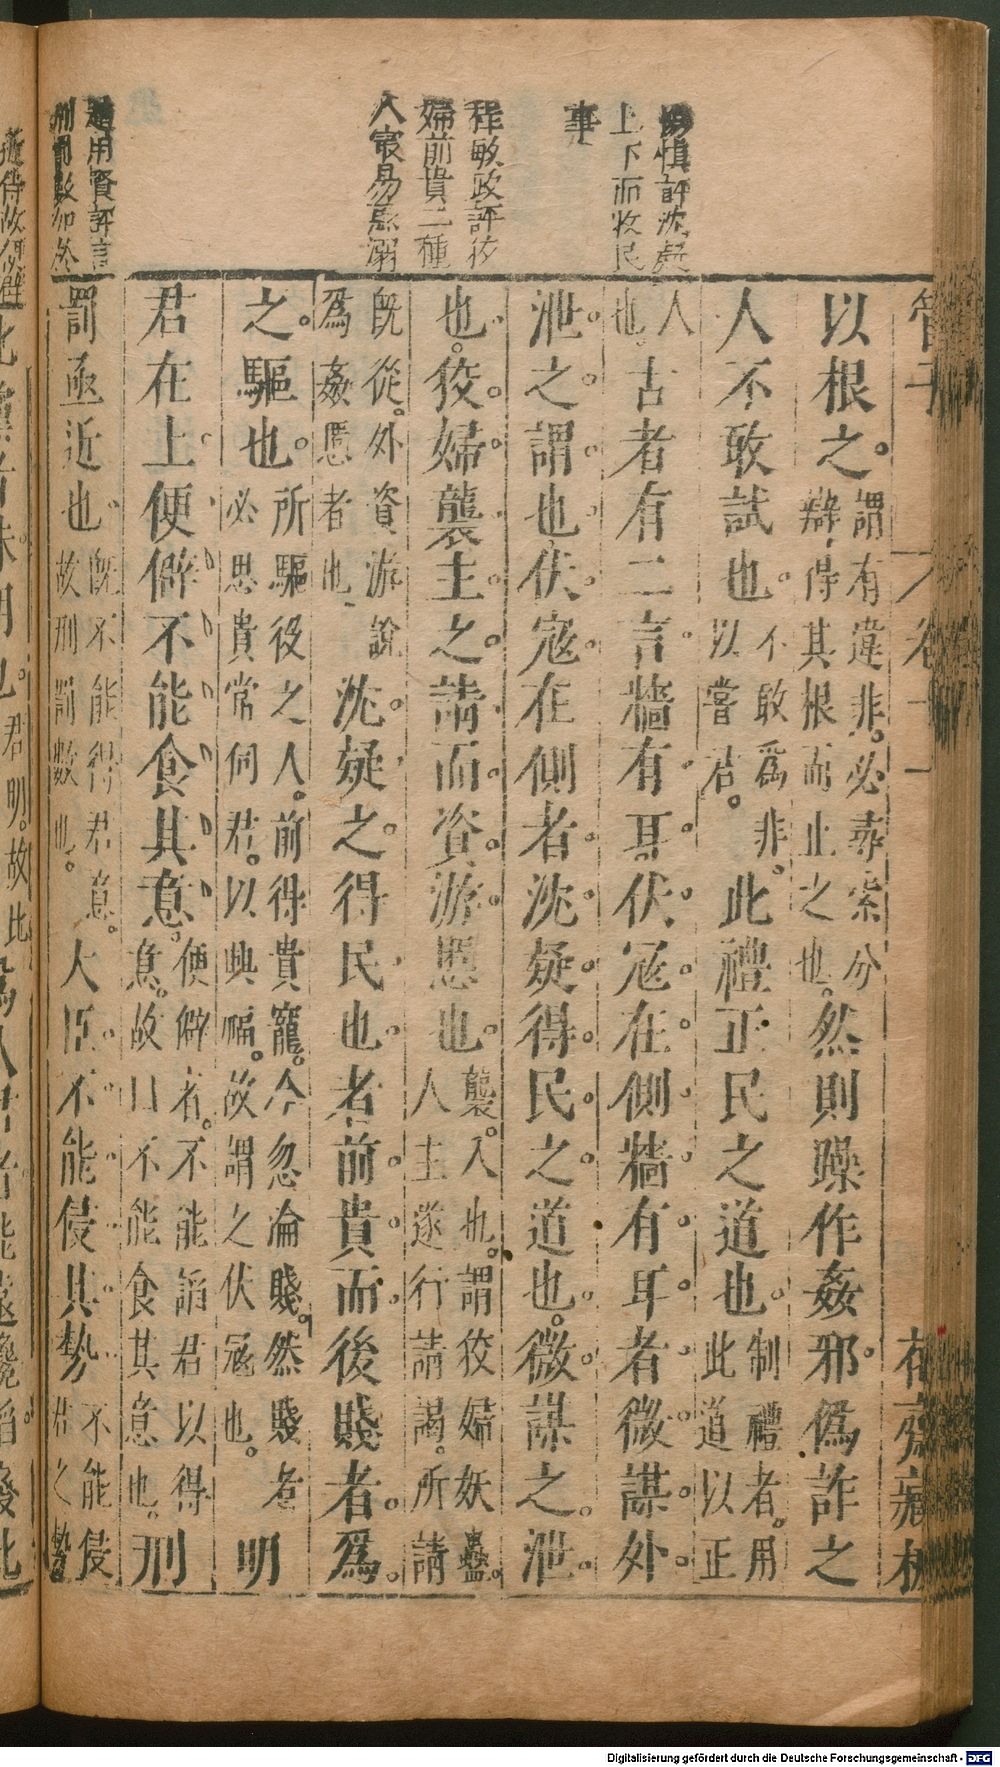 管子
卷十一
花齋藏板
以根之謂有違非必尋索分
辯得其根而止之也然則躁作姦邪僞詐之
人不敢試也不敢爲非
以嘗君此禮正民之道也制禮者用
此道以正
人
也古者有二言牆有耳伏寇在側牆有耳者微謀外
泄之謂也伏寇在側者沈疑得民之道也微謀之泄
也狡婦襲主之請而資游慝也襲入也謂狡婦妖蠱
人主遂行請謁所請
旣從外資游說
爲姦慝者也沈疑之得民也者前貴而後賤者爲
之驅也所驅役之人前得貴寵今忽淪賤然賤者
必思貴常伺君以興福故謂之伏寇也明
君在上便僻不能食其意便僻者不能諂君以得
意故口不能食其意也刑
罰亟近也旣不能得君意
故刑罰數也大臣不能侵其勢不能侵
君之勢
慎評沈疑
上下而收民
事
程敏政評狡
婦前貴二種
人最易惑溺
用賢評言
刑罰數如
君明故比
Digitalisierung gefördert durch die Deutsche Forschungsgemeinschaft - DFG